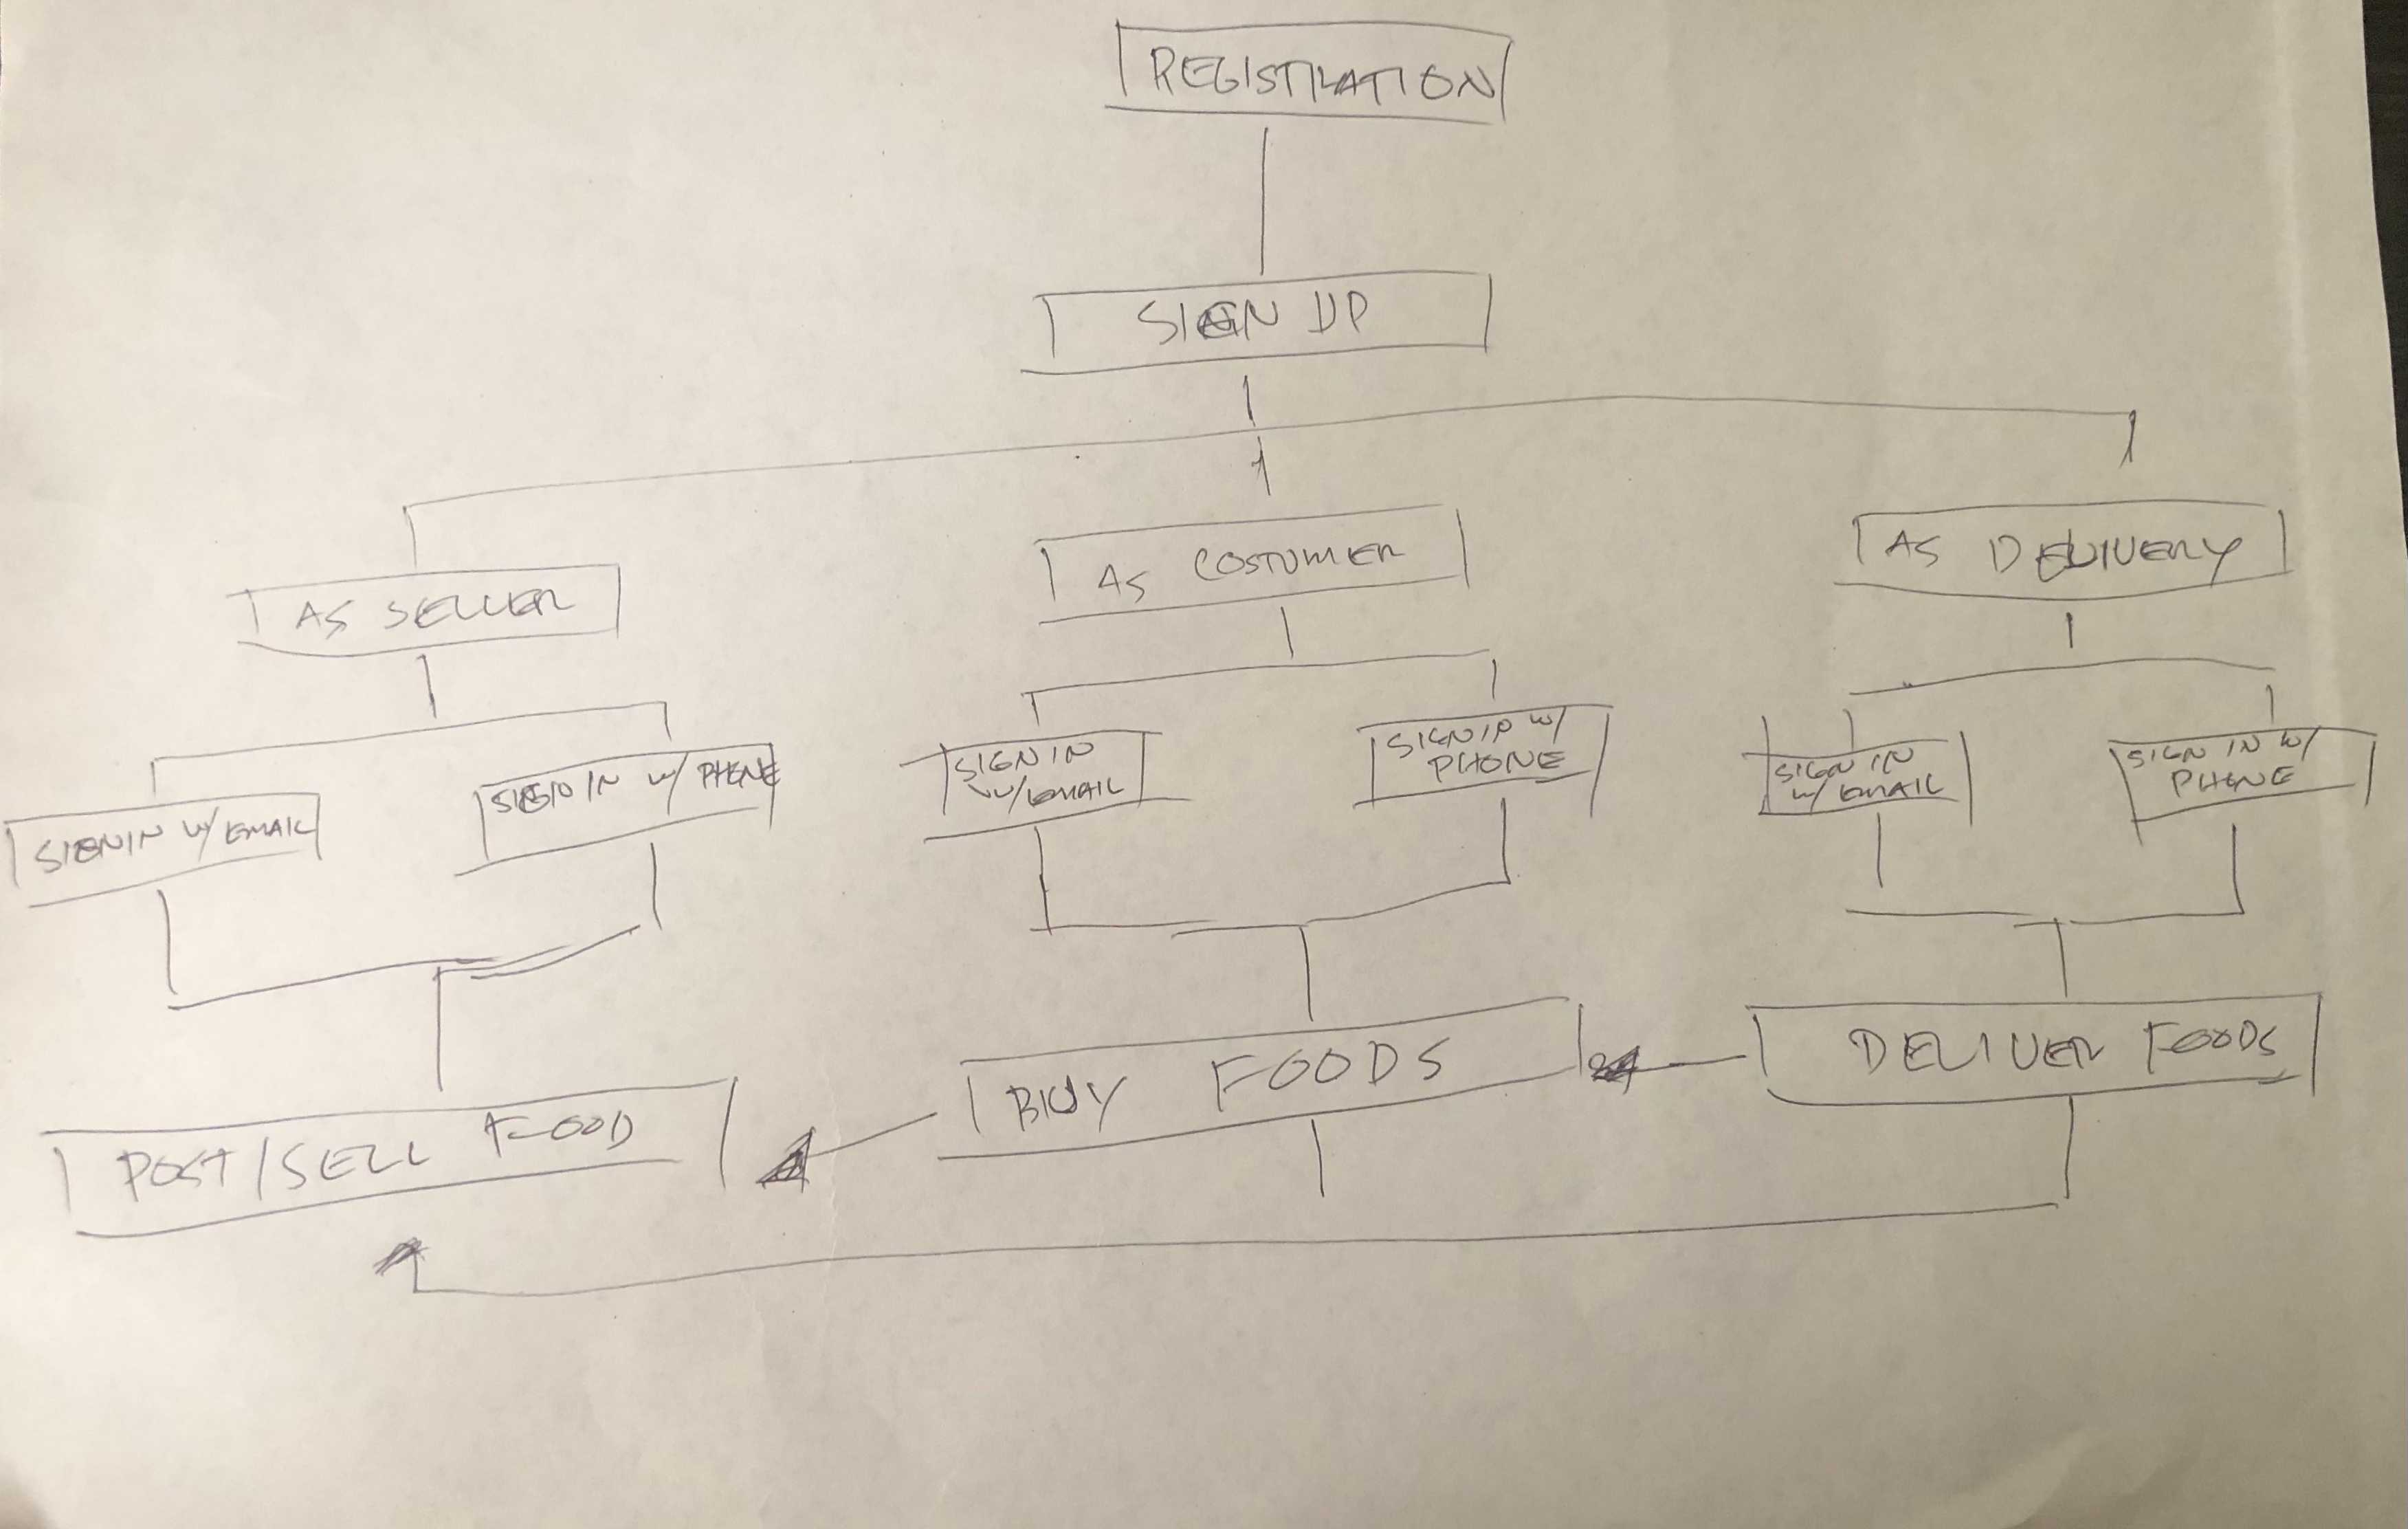 REGISTRATION
SIGN UP
AS SELLER
AS COSTUMER
AS DELIVERY
SIGN IN W/ EMAIL
SIGN IN W/ PHONE
SIGN IN
W/ EMAIL
SIGN IP W/
PHONE
SIGN IN
W/ EMAIL
SIGN IN W/
PHONE
POST/SELL FOOD
BUY FOODS
DELIVER FOODS